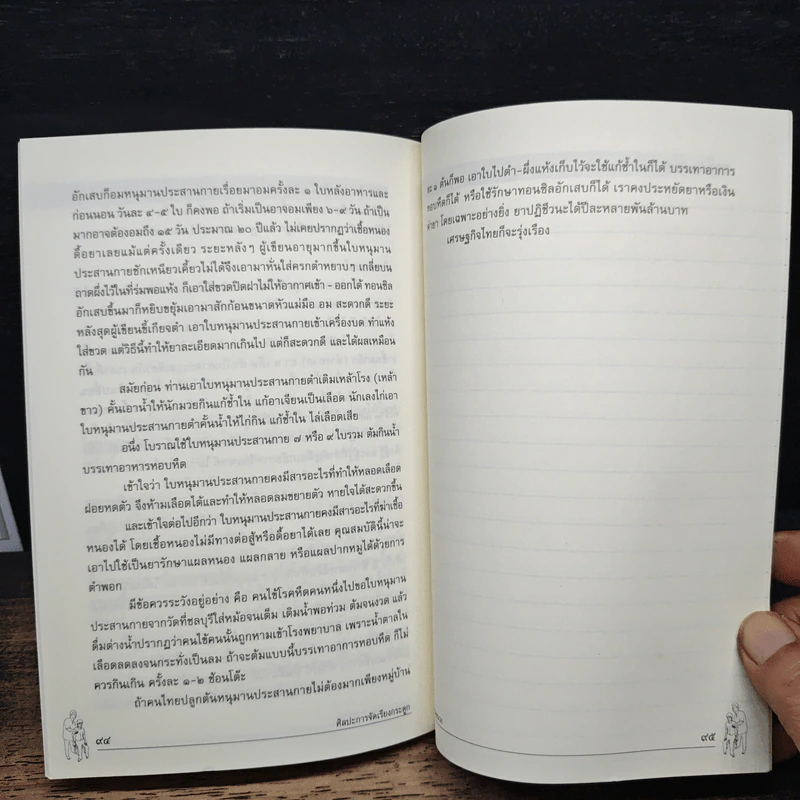 อักเสบก็อมหนุมานประสานกายเรื่อยมาอมครั้งละ ๑ ใบหลังอาหารและ
ก่อนนอน วันละ ๔-๕ ใบ ก็คงพอ ถ้าเริ่มเป็นอาจอมเพียง ๖-๙ วัน ถ้าเป็น
มากอาจต้องอมถึง ๑๕ วัน ประมาณ ๒๐ ปีแล้ว ไม่เคยปรากฏว่าเชื้อหนอง
ดื้อยาเลยแม้แต่ครั้งเดียว ระยะหลังๆ ผู้เขียนอายุมากขึ้นใบหนุมาน
ประสานกายชักเหนียวเคี้ยวไม่ได้จึงเอามาหั่นใส่ครกตำหยาบๆ เกลี่ยบน
ถาดผึ่งไว้ในที่ร่มพอแห้ง ก็เอาใส่ขวดปิดฝาไม่ให้อากาศเข้า-ออกได้ ทอนซิล
อักเสบขึ้นมาก็หยิบขยุ้มเอามาสักก้อนขนาดหัวแม่มือ อม สะดวกดี ระยะ
หลังสุดผู้เขียนขี้เกียจตำ เอาใบหนุมานประสานกายเข้าเครื่องบด ทำแห้ง
ใส่ขวด แต่วิธีนี้ทำให้ยาละเอียดมากเกินไป แต่ก็สะดวกดี และได้ผลเหมือน
กัน
สมัยก่อน ท่านเอาใบหนุมานประสานกายตำเติมเหล้าโรง (เหล้า
ขาว) คั้นเอาน้ำให้นักมวยกินแก้ช้ำใน แก้อาเจียนเป็นเลือด นักเลงไก่เอา
ใบหนุมานประสานกายตำคั้นน้ำให้ไก่กิน แก้ช้ำใน ไล่เลือดเสีย
อนึ่ง โบราณใช้ใบหนุมานประสานกาย ๗ หรือ ๙ ใบรวม ต้มกินน้ำ
บรรเทาอาหารหอบหืด
เข้าใจว่า ใบหนุมานประสานกายคงมีสารอะไรที่ทำให้หลอดเลือด
ฝอยหดตัว จึงห้ามเลือดได้และทำให้หลอดลมขยายตัว หายใจได้สะดวกขึ้น
และเข้าใจต่อไปอีกว่า ใบหนุมานประสานกายคงมีสารอะไรที่ฆ่าเชื้อ
หนองได้ โดยเชื้อหนองไม่มีทางต่อสู้หรือดื้อยาได้เลย คุณสมบัตินี้น่าจะ
เอาไปใช้เป็นยารักษาแผลหนอง แผลกลาย หรือแผลปากหมูได้ด้วยการ
ตำพอก
มีข้อควรระวังอยู่อย่าง คือ คนไข้โรคหืดคนหนึ่งไปขอใบหนุมาน
ประสานกายจากวัดที่ชลบุรีใส่หม้อจนเต็ม เติมน้ำพอท่วม ต้มจนงวด แล้ว
ดื่มต่างน้ำปรากฏว่าคนไข้คนนั้นถูกหามเข้าโรงพยาบาล เพราะน้ำตาลใน
เลือดลดลงจนกระทั่งเป็นลม ถ้าจะต้มแบบนี้บรรเทาอาการหอบหืด ก็ไม่
ควรกินเกิน ครั้งละ ๑-๒ ช้อนโต๊ะ
ถ้าคนไทยปลูกต้นหนุมานประสานกายไม่ต้องมากเพียงหมู่บ้าน
๙๔
ศิลปะการจัดเรียงกระดูก
ละ ๑ ต้นก็พอ เอาใบไปตำ-ผึ่งแห้งเก็บไว้จะใช้แก้ช้ำในก็ได้ บรรเทาอาการ
หอบหืดก็ได้ หรือใช้รักษาทอนซิลอักเสบก็ได้ เราคงประหยัดยาหรือเงิน
ค่ายา โดยเฉพาะอย่างยิ่ง ยาปฏิชีวนะได้ปีละหลายพันล้านบาท
เศรษฐกิจไทยก็จะรุ่งเรือง
๙๕